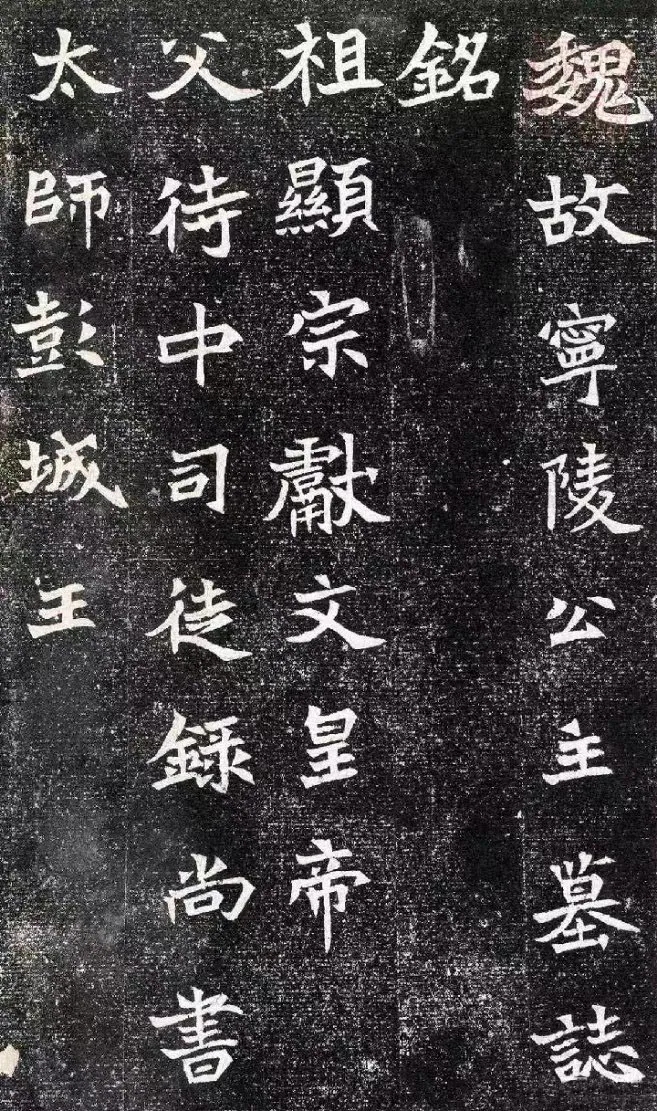 魏故寧陵公主墓誌
銘
祖顯宗獻文皇帝
父侍中司徒録尚書
太師彭城王